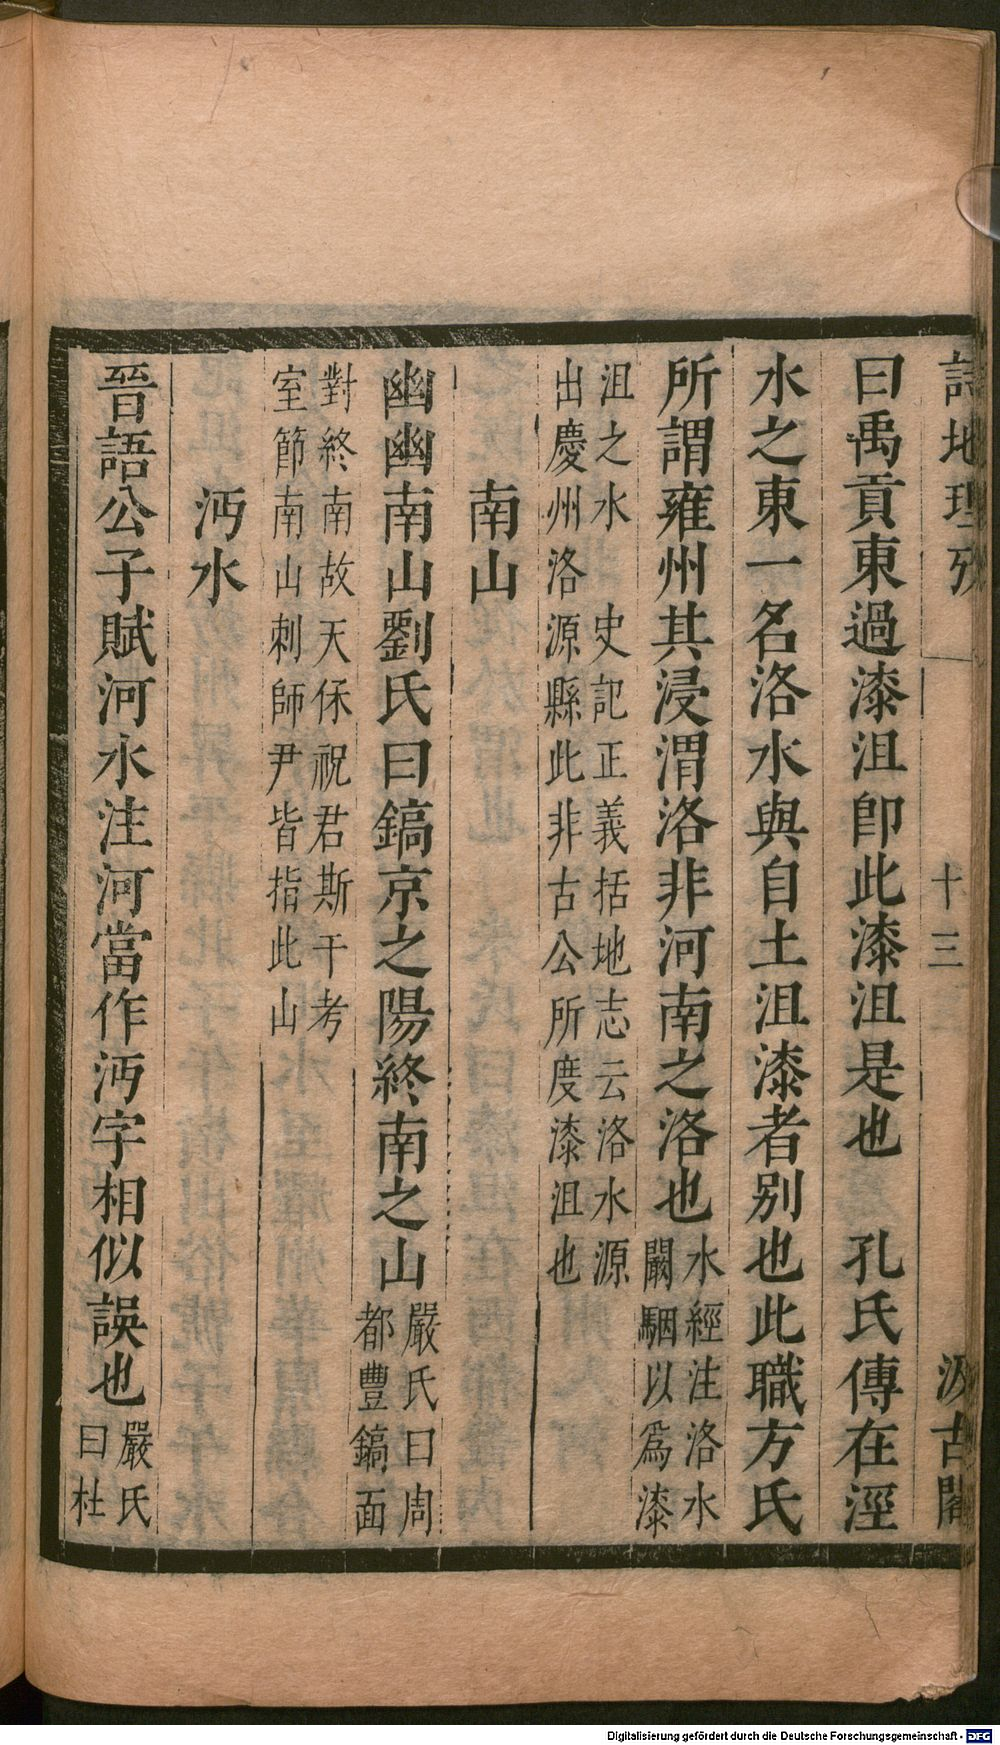 詩地理攷 十三 汲古閣
曰禹貢東過漆沮卽此漆沮是也 孔氏傳在涇
水之東一名洛水與自土沮漆者别也此職方氏
所謂雍州其浸渭洛非河南之洛也水經注洛水
闞駰以爲漆
沮之水 史記正義括地志云洛水源
出慶州洛源縣此非古公所度漆沮也
南山
幽幽南山劉氏曰鎬京之陽終南之山嚴氏曰周
都豐鎬面
對終南故天保祝君斯干考
室節南山刺師尹皆指此山
沔水
晉語公子賦河水注河當作沔字相似誤也嚴氏
曰杜
Digitalisierung gefördert durch die Deutsche Forschungsgemeinschaft - DFG